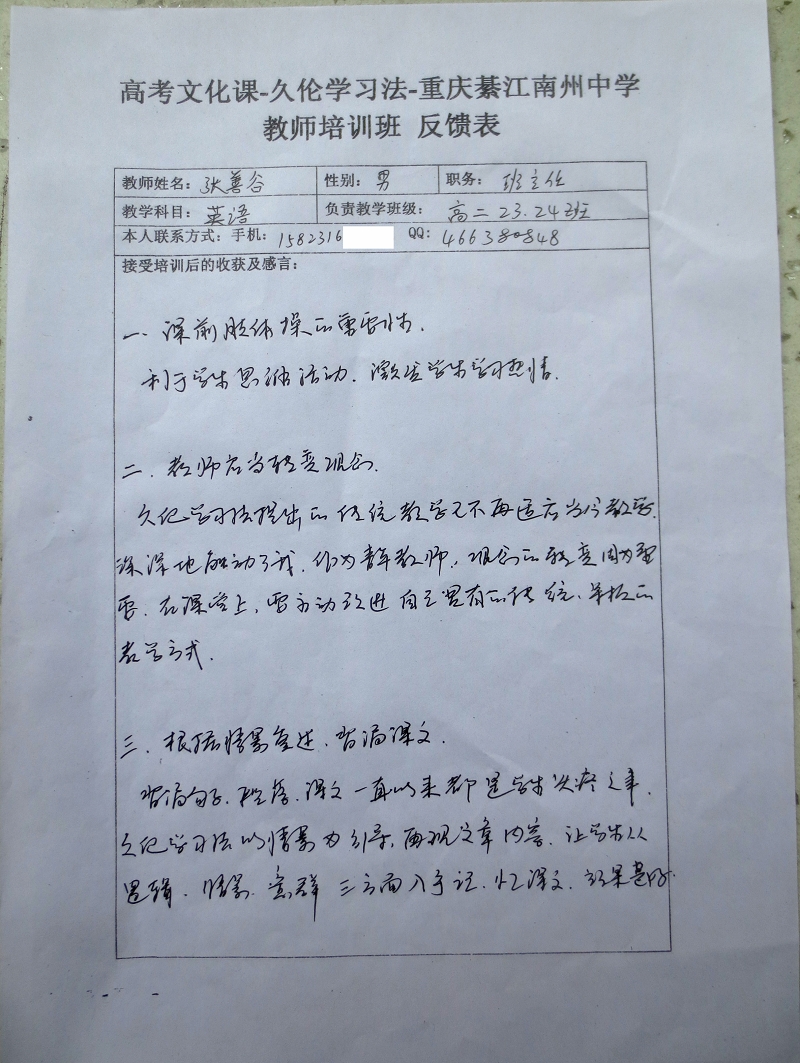 高考文化课-久伦学习法-重庆綦江南州中学
教师培训班 反馈表
教师姓名：张善谷 性别：男 职务：班主任
教学科目：英语 负责教学班级：高二23.24班
本人联系方式：手机：1582316 QQ：466380848
接受培训后的收获及感言：
一 课前肢体操的重要性.
利于学生思维活动. 激发学生学习热情.
二. 教师应当转变观念.
久伦学习法提出的传统教学已不再适应当今教学.
深深地触动了我. 作为青年教师, 观念的转变尤为重
要. 在课堂上, 要主动改进自己固有的传统、单板的
教学方式.
三. 根据情景复述、背诵课文.
背诵句子、段落、课文一直以来都是学生头疼之事.
久伦学习法以情景为引导, 再现文章内容. 让学生从
逻辑、情景、意群三方面入手记、忆课文. 效果甚好.